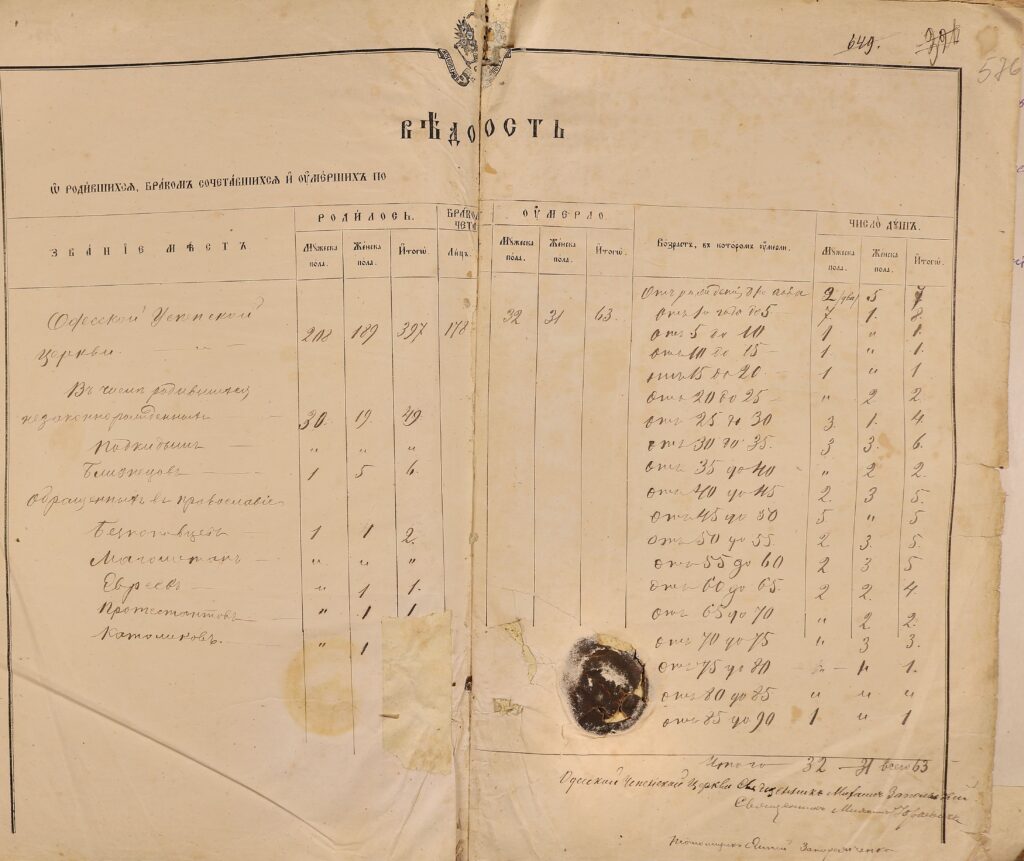 649.
576
ВѢДО ОСТЬ
Ѡ РОДИ́ВШИХСЯ, БРА́КОМЪ СОЧЕТА́ВШИХСЯ И҆ ОУ҆МЕ́РШИХЪ ПО
ЗВАНІЕ МѢСТЪ
РОДИ́ЛОСЬ.
Мꙋ́жеска пола.
Же́нска пола.
И҆тогѡ̀
БРА́КО ЧЕТА
Лицъ.
ОУ҆МЕРЛО
Мꙋ́жеска пола.
Же́нска пола.
И҆тогѡ̀.
Во́зрастъ, въ которомъ оу҆мерли.
ЧИСЛО̀ ДꙊ́ШЪ.
Мꙋ́жеска пола.
Же́нска пола.
И҆тогѡ̀.
Одесской Успенской
церкви. 208 189 397 178 32 31 63.
Въ числѣ родившихся
незаконнорожденныхъ 30. 19. 49.
Подкидышей " " "
Близнецовъ 1 5 6.
Обращенныхъ въ православіе
1 1 2.
Магометанъ " " "
Евреевъ " 1 1.
Протестантовъ " 1 1
Католиковъ. " 1
Отъ рожденія до года 2 (два) 5 7
Отъ 1 года до 5 7. 1. 8.
Отъ 5 до 10 1 " 1.
Отъ 10 до 15 1. " 1.
Отъ 15 до 20 1 " 1
Отъ 20 до 25 " 2 2.
Отъ 25 до 30 3 1. 4.
Отъ 30 до 35. 3 3. 6.
Отъ 35 до 40 " 2 2.
Отъ 40 до 45 2. 3 5.
Отъ 45 до 50 5 " 5
Отъ 50 до 55. 2 3. 5.
Отъ 55 до 60 2 3 5
Отъ 60 до 65. 2 2. 4.
Отъ 65 до 70 " 2 2.
Отъ 70 до 75 " 3 3.
Отъ 75 до 80 1.
Отъ 80 до 85 " " "
Отъ 85 до 90 1 " 1
Итого 32 31 всего 63
Одесской Успенской Церкви Священникъ Михаилъ
Священникъ